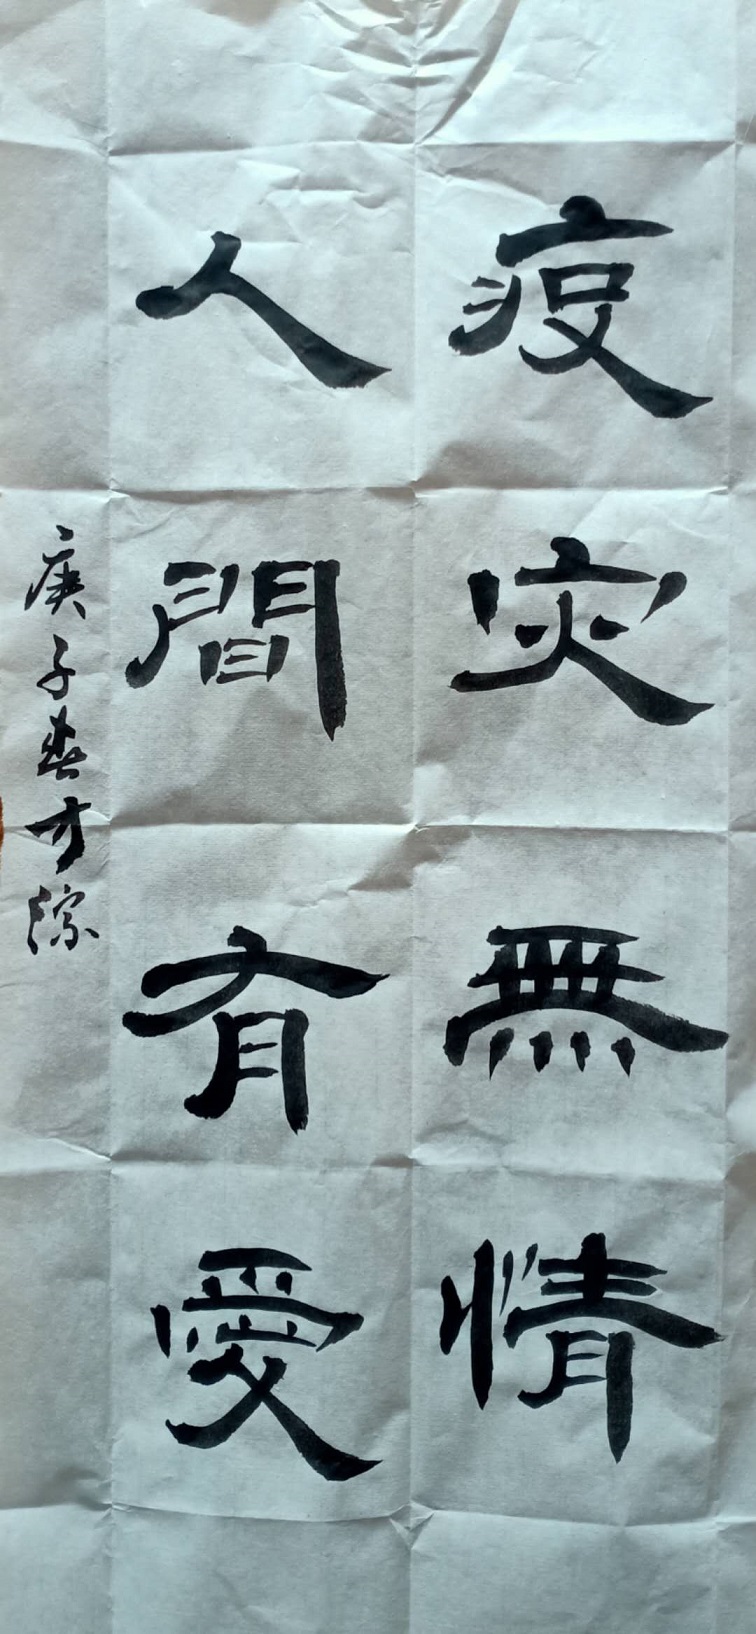 疫灾無情
人間有愛
庚子春才綜